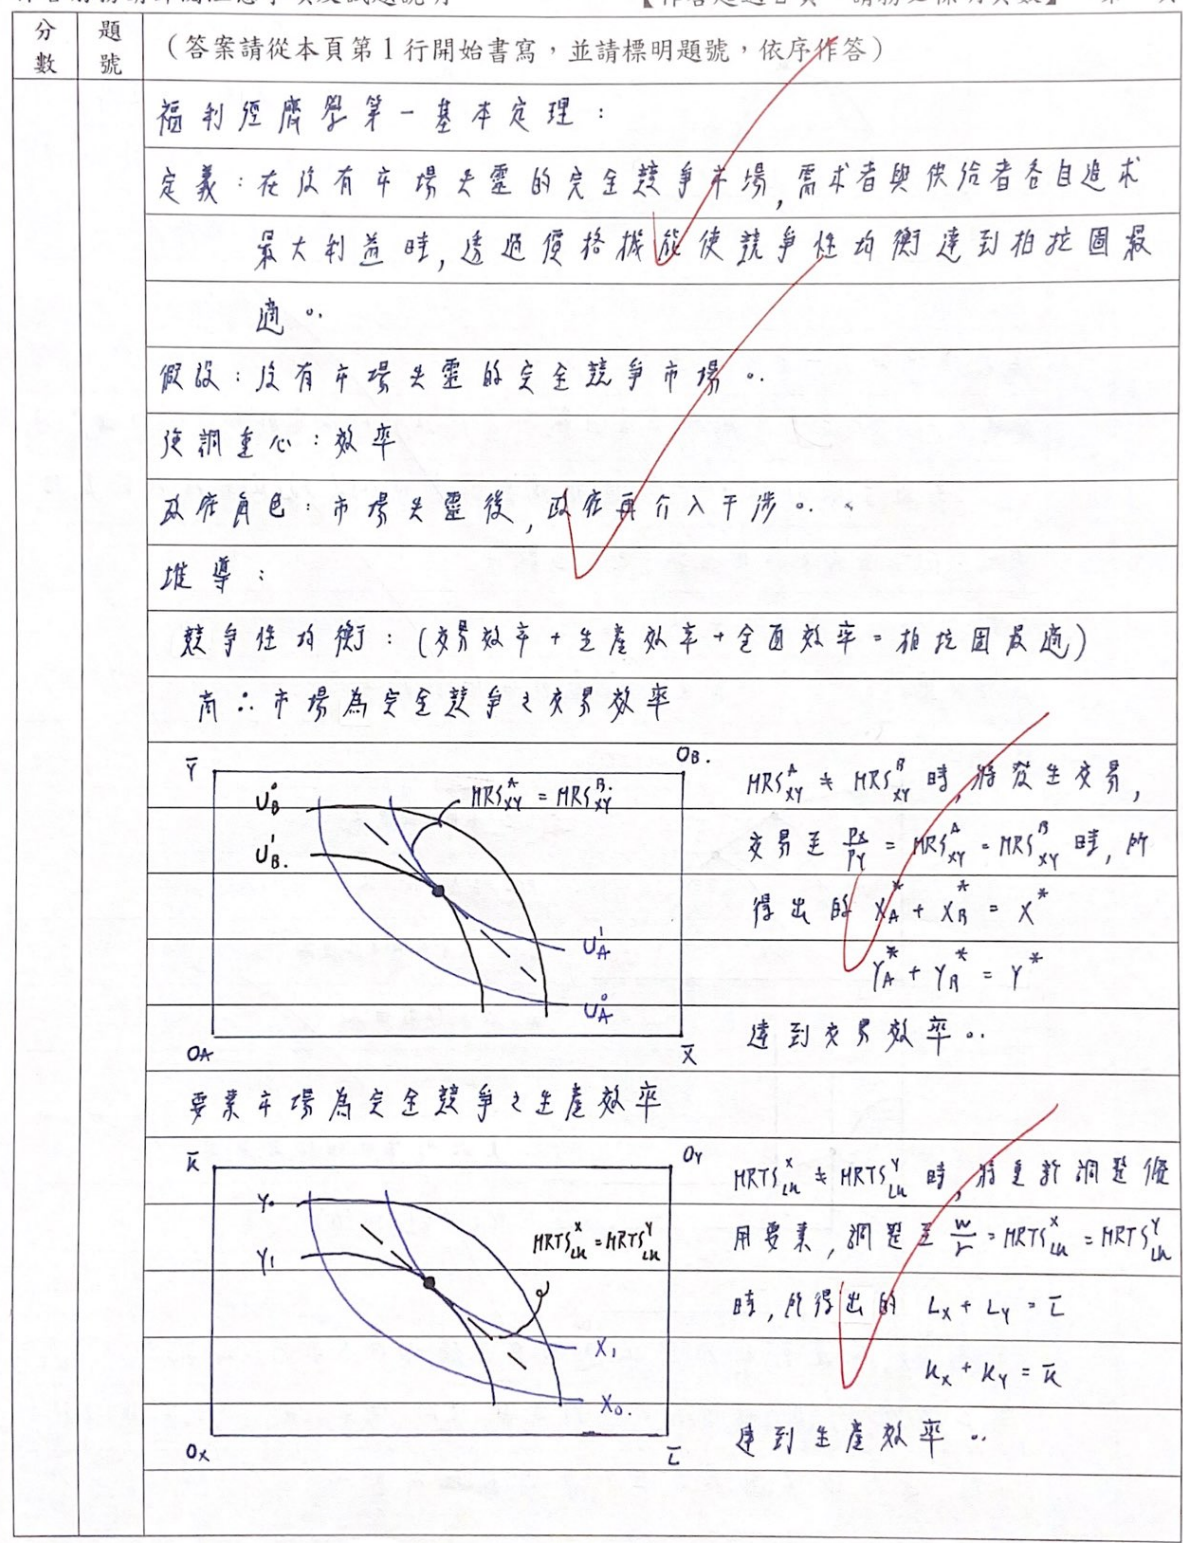 分數
題號
(答案請從本頁第1行開始書寫,並請標明題號,依序作答)
福利經濟學第一基本定理:
定義:在沒有市場失靈的完全競爭市場,需求者與供給者各自追求
最大利益時,透過價格機能使競爭性均衡達到柏拉圖最
適。
假設:沒有市場失靈的完全競爭市場。
強調重心:效率
政府角色:市場失靈後,政府再介入干涉。
推導:
競爭性均衡:(交易效率+生產效率+全面效率=柏拉圖最適)
商∴市場為完全競爭之交易效率
Ȳ
O_B.
U_B^0
U_B^1.
MRS_XY^A = MRS_XY^B.
U_A^1
U_A^0
O_A
X̄
MRS_XY^A ≠ MRS_XY^B 時,將發生交易,
交易至 Px/Py = MRS_XY^A = MRS_XY^B 時,所
得出的 X_A^* + X_B^* = X^*
Y_A^* + Y_B^* = Y^*
達到交易效率。
要素市場為完全競爭之生產效率
K̄
O_Y
Y₀
Y₁
MRTS_LK^X = MRTS_LK^Y
X₁
X₀.
O_X
L̄
MRTS_LK^X ≠ MRTS_LK^Y 時,將重新調整僱
用要素,調整至 w/r = MRTS_LK^X = MRTS_LK^Y
時,所得出的 L_X + L_Y = L̄
K_X + K_Y = K̄
達到生產效率。